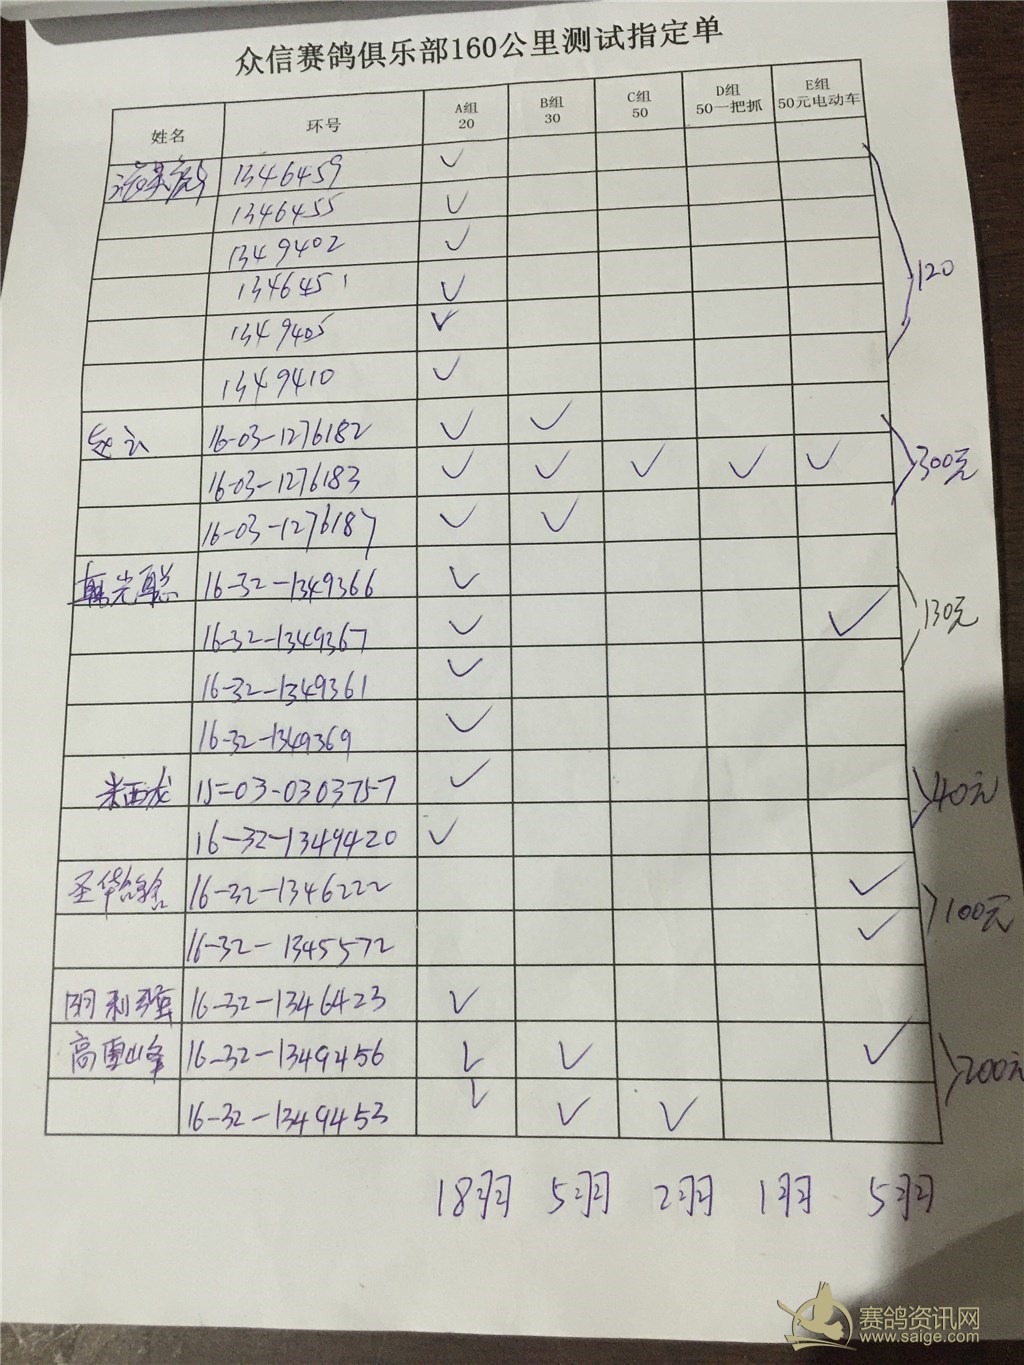 众信赛鸽俱乐部160公里测试指定单
姓名 环号 A组 20 B组 30 C组 50 D组 50一把抓 E组 50元电动车
1346459 ✓
1346455 ✓
1349402 ✓
1346451 ✓
1349405 ✓
1349410 ✓
120
16-03-1276182 ✓ ✓
16-03-1276183 ✓ ✓ ✓ ✓ ✓
16-03-1276187 ✓ ✓
300元
韩光聪 16-32-1349366 ✓
16-32-1349367 ✓ ✓
16-32-1349361 ✓
16-32-1349369 ✓
130元
米西龙 15=03-0303757 ✓
16-32-1349420 ✓
40元
圣华鸽舍 16-32-1346222 ✓
16-32-1345572 ✓
100元
阴利强 16-32-1346423 ✓
高雪峰 16-32-1349456 ✓ ✓ ✓
16-32-1349453 ✓ ✓ ✓
200元
18羽 5羽 2羽 1羽 5羽
赛鸽资讯网
www.saige.com